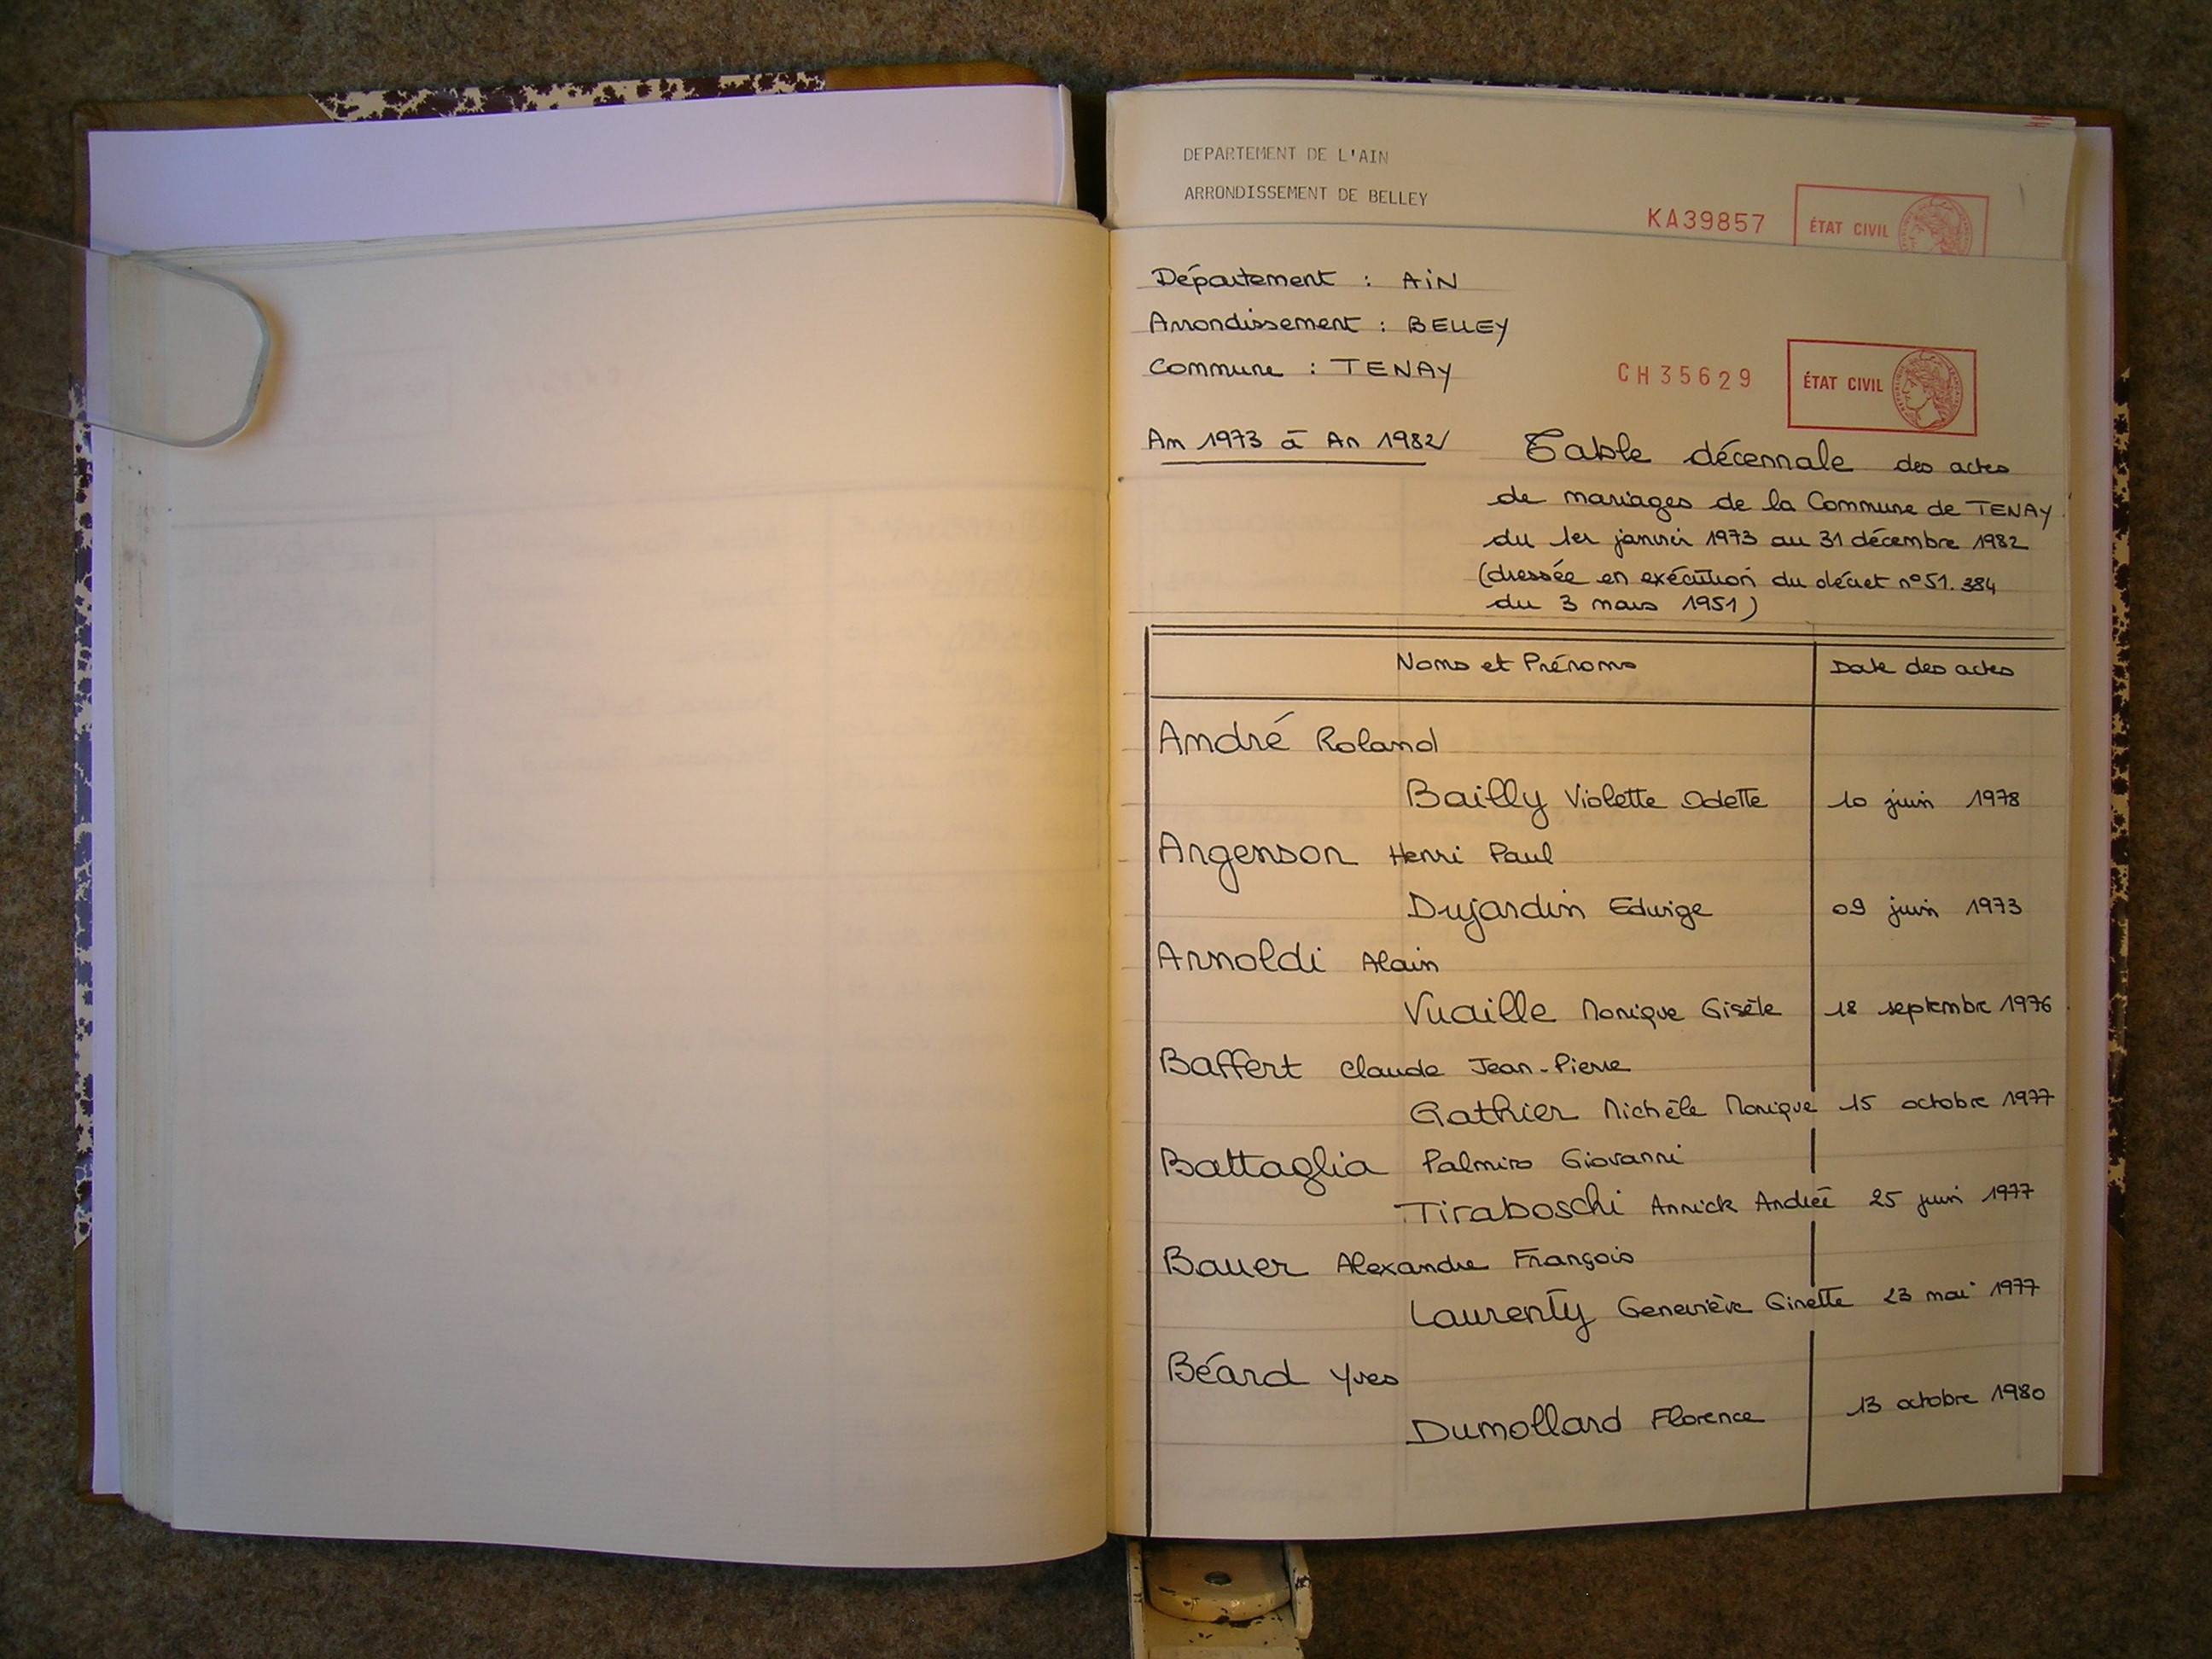 DEPARTEMENT DE L'AIN
ARRONDISSEMENT DE BELLEY
KA39857 ÉTAT CIVIL
Département : AIN
Arrondissement : BELLEY
Commune : TENAY
CH35629 ÉTAT CIVIL
An 1973 à An 1982
Table décennale des actes
de mariages de la Commune de TENAY
du 1er janvier 1973 au 31 décembre 1982
(dressée en exécution du décret n°51.384
du 3 mars 1951)
Noms et Prénoms Date des actes
André Roland
Bailly Violette Odette 10 juin 1978
Argenson Henri Paul
Dujardin Edwige 09 juin 1973
Arnoldi Alain
Vuaille Monique Gisèle 18 septembre 1976
Baffert Claude Jean-Pierre
Gathier Michèle Monique 15 octobre 1977
Battaglia Palmiro Giovanni
Tiraboschi Annick Andrée 25 juin 1977
Bauer Alexandre François
Laurenty Geneviève Ginette 23 mai 1977
Béard Yves
Dumollard Florence 13 octobre 1980